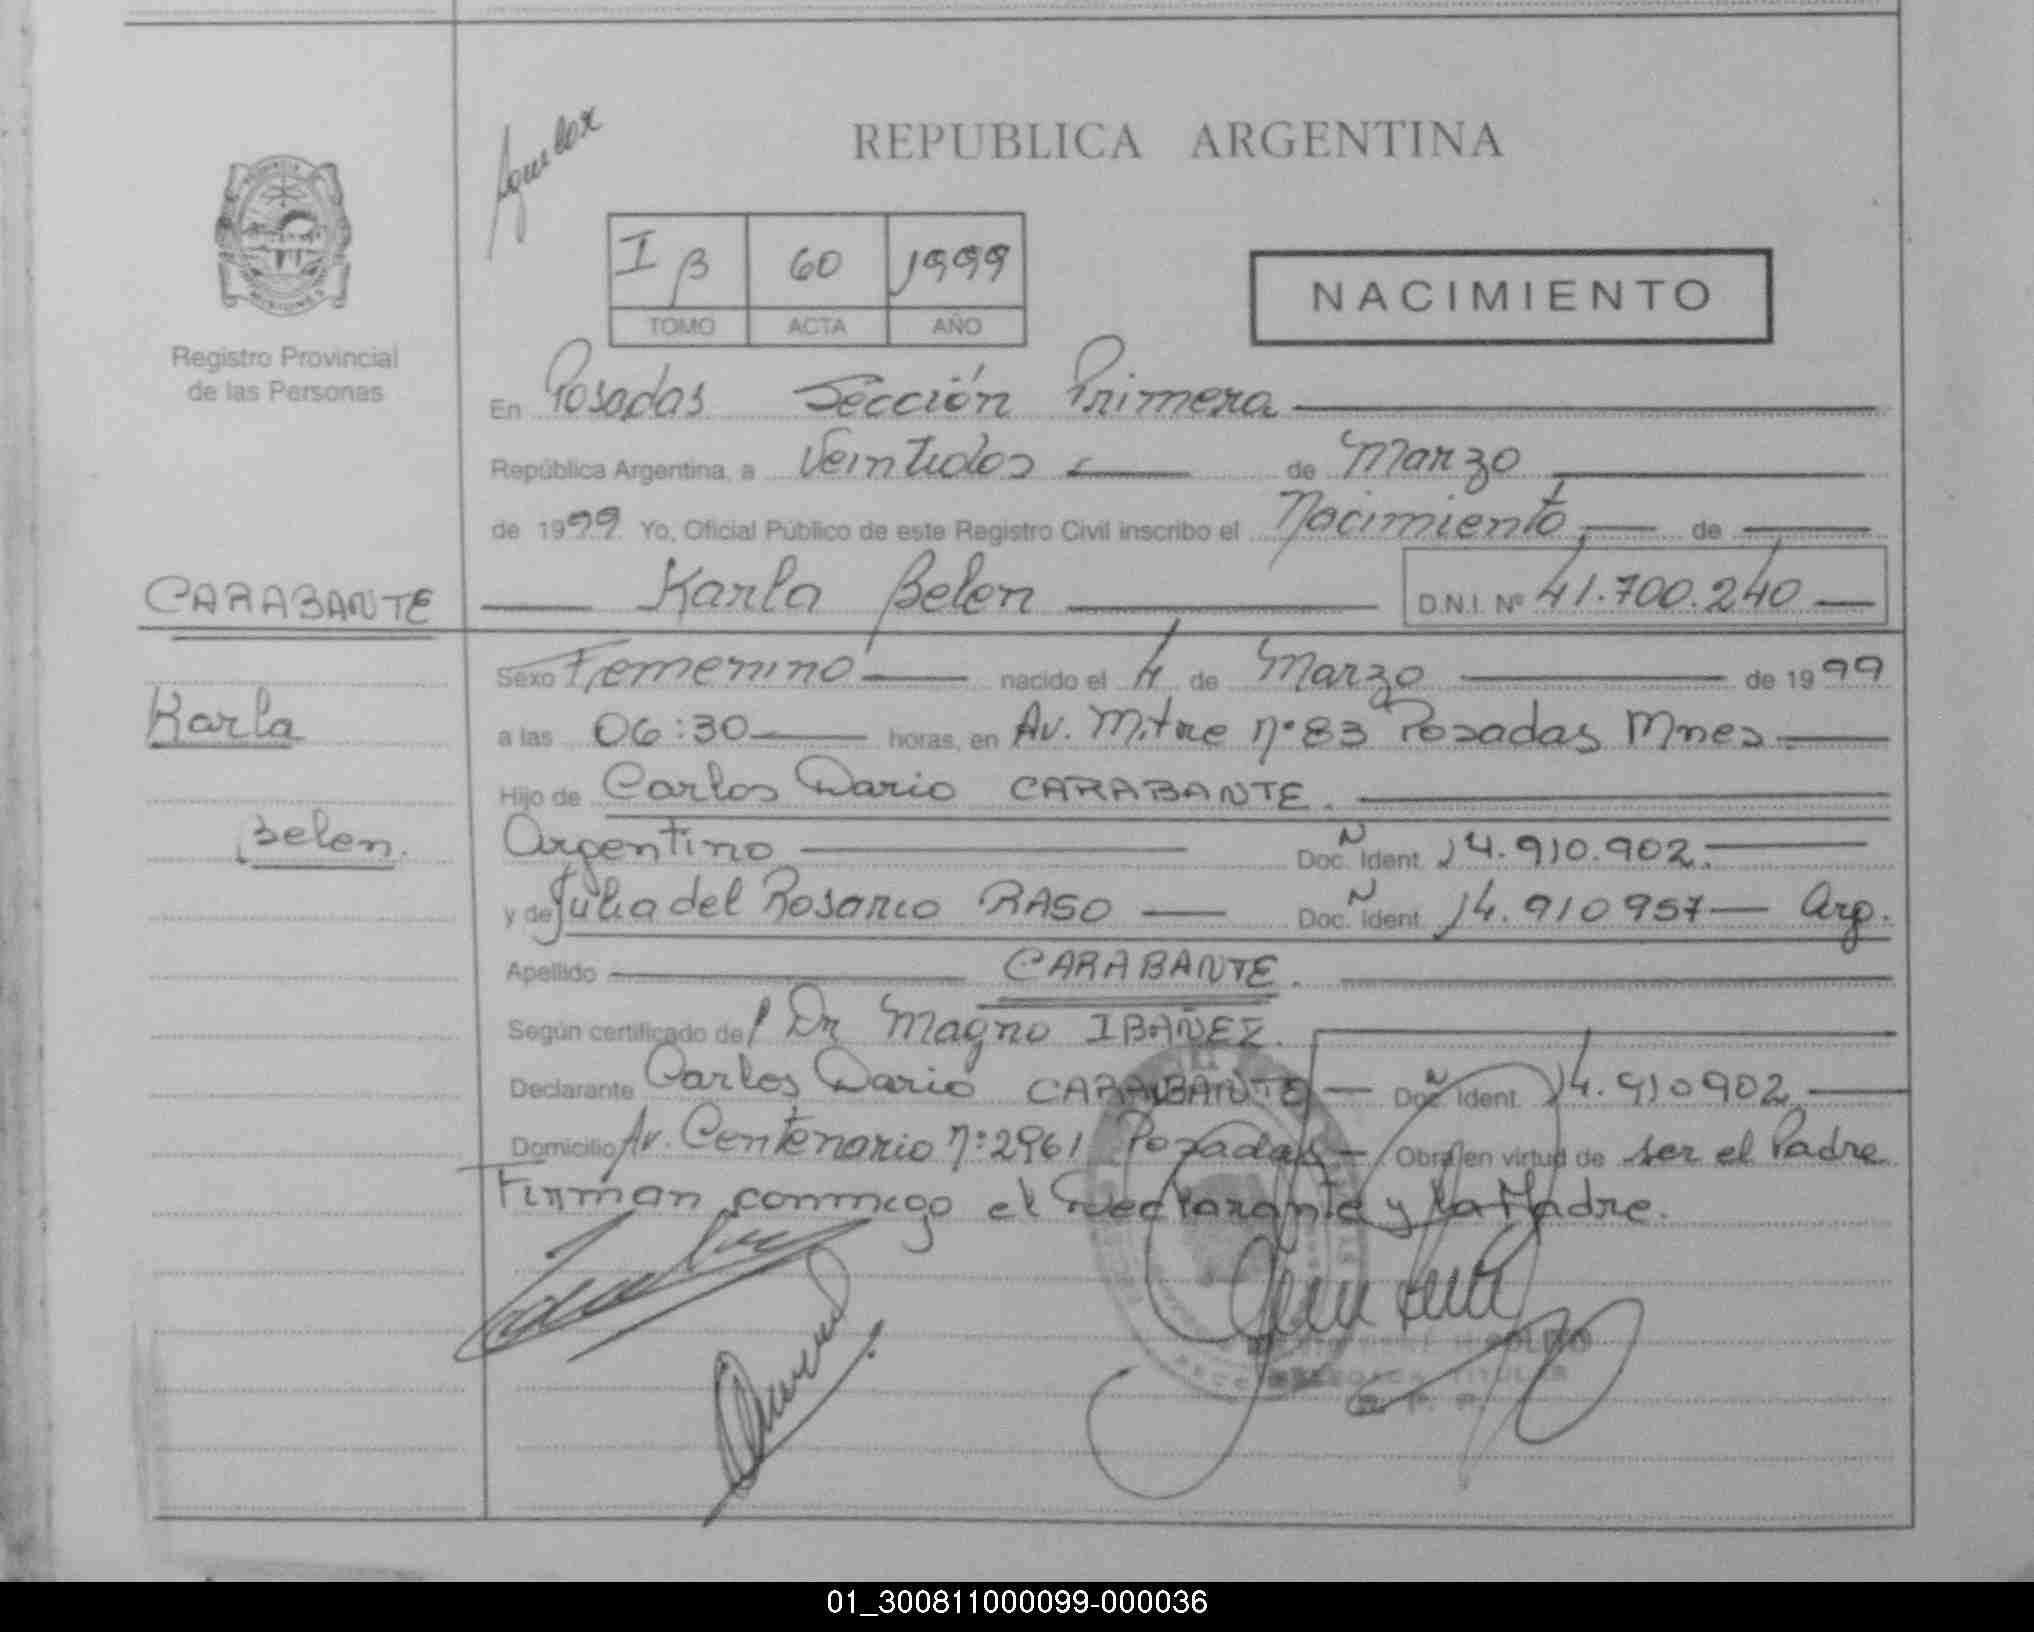 REPUBLICA ARGENTINA
I B 60 1999
TOMO ACTA AÑO
NACIMIENTO
Registro Provincial
de las Personas
En Posadas Sección Primera
República Argentina, a Veintidos de Marzo
de 1999 Yo, Oficial Público de este Registro Civil inscribo el Nacimiento de
CARABANTE
Karla Belen D.N.I. Nº 41.700.240
Sexo Femenino nacido el 4 de Marzo de 1999
Karla
a las 06:30 horas, en Av. Mitre nº 83 Posadas Mnes
Hijo de Carlos Dario CARABANTE.
Belen.
Argentino Doc. Ident. 14.910.902.
y de Julia del Rosario RASO Doc. Ident. 14.910957 Arg.
Apellido CARABANTE.
Según certificado del Dr Magno IBAÑEZ.
Declarante Carlos Dario CARABANTE Doc. Ident. 14.910902
Domicilio Av. Centenario nº 2961 Posadas Obra en virtud de ser el Padre
Firman conmigo el Declarante y la Madre.
TITULAR
01_300811000099-000036